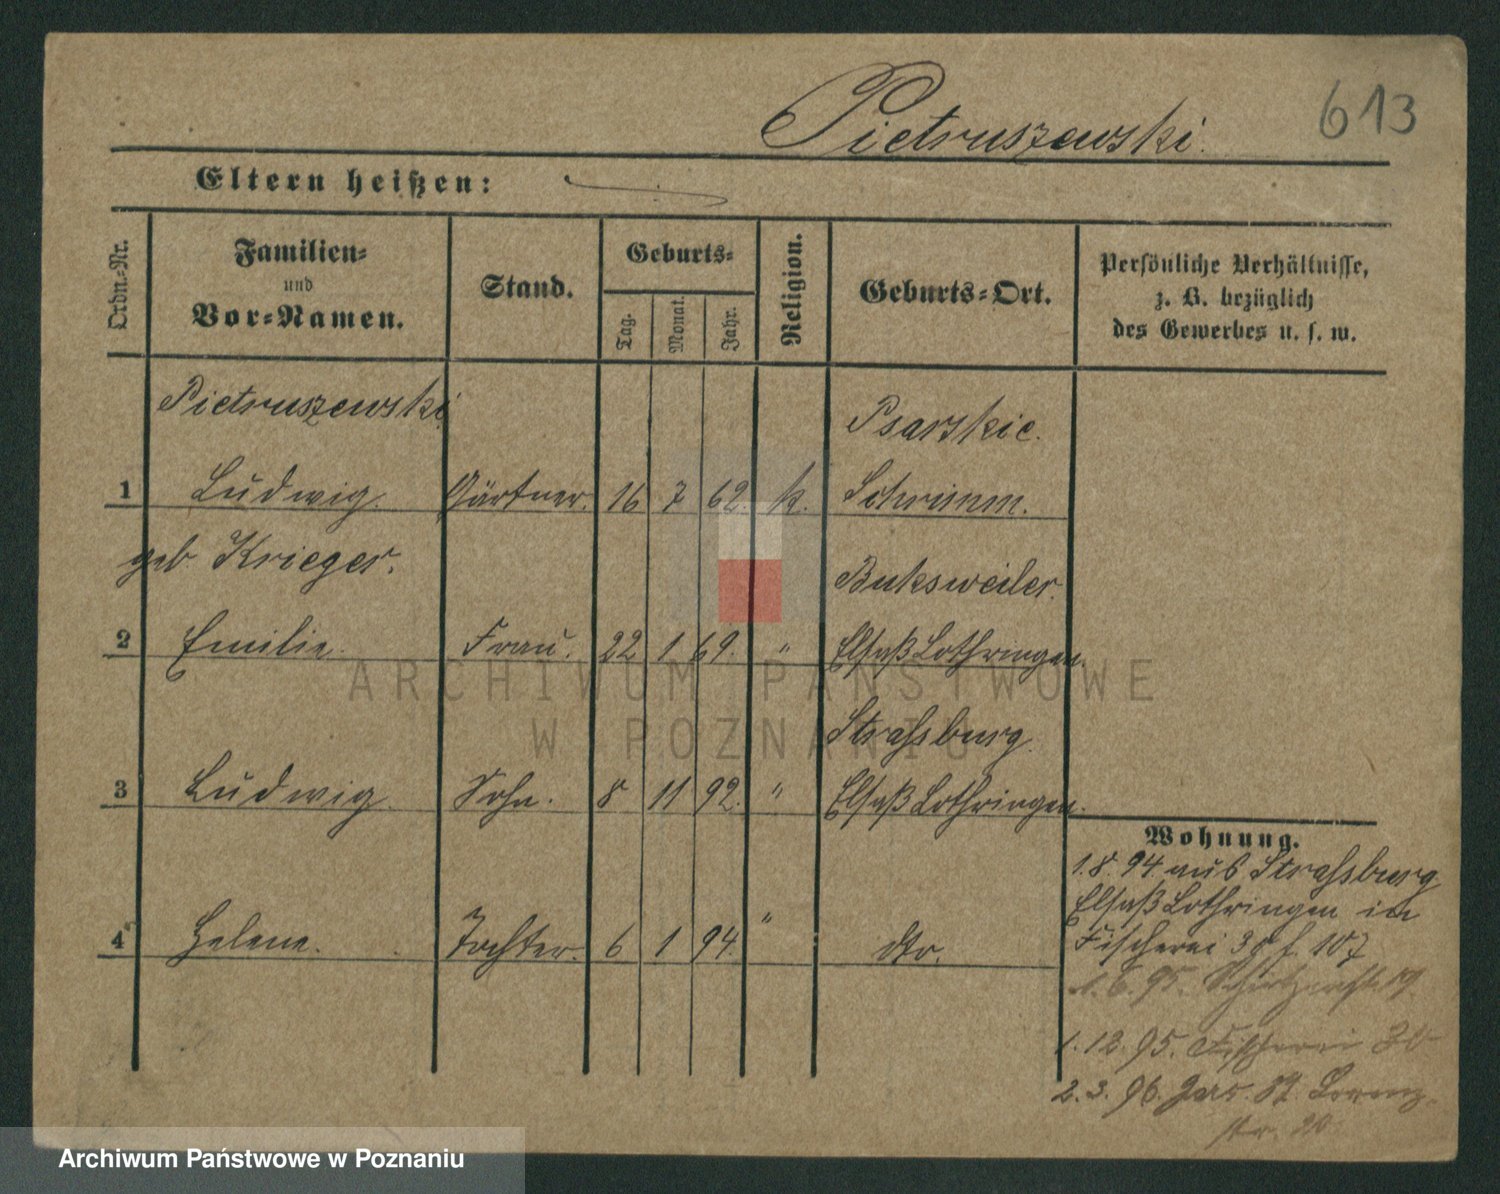 Pietruszewski.
613
Eltern heißen:
Ordn.-Nr.
Familien-
und
Vor-Namen.
Stand.
Geburts-
Tag.
Monat.
Jahr.
Religion.
Geburts-Ort.
Persönliche Verhältnisse,
z. B. bezüglich
des Gewerbes u. s. w.
Pietruszewski Psarskie.
1 Ludwig. Gärtner. 16 7 62. k. Schrimm.
geb Krieger. Buksweiler.
2 Emilie. Frau. 22 1 69. " Elsaß Lothringen.
Strassburg
3 Ludwig. Sohn. 8 11 92. " Elsaß Lothringen.
4 Helene. Tochter. 6 1 94. " dto.
Wohnung.
1.8.94 aus Strassburg
Elsaß Lothringen in
Fischerei 30 107
1.6.95. 19
1.12.95. Fischerei 30
2.3.96.
str. 20
ARCHIWUM PAŃSTWOWE
W POZNANIU
Archiwum Państwowe w Poznaniu